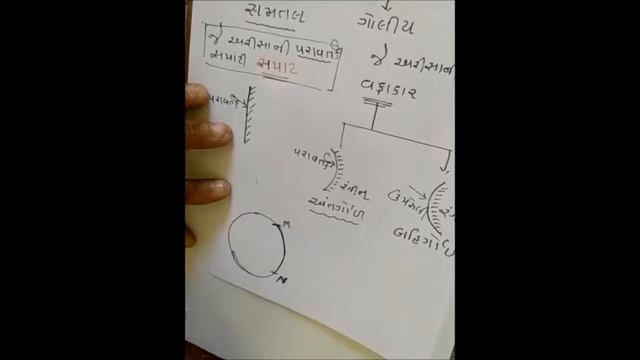 સમતલ
ગોલીય
જે અરીસાની પરાવર્તક
સપાટી સપાટ
જે અરીસાની
વક્રાકાર
પરાવર્તક
પરાવર્તક
અંતર્ગોળ
બહિર્ગોળ
M
N